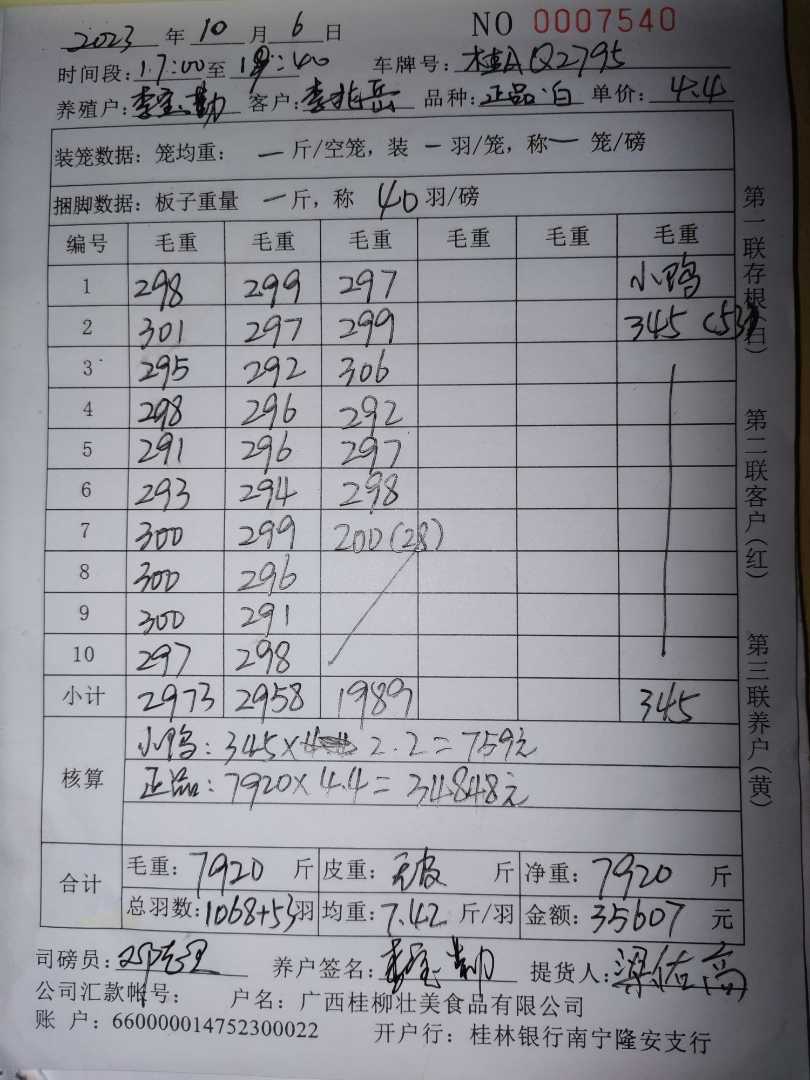 NO 0007540
2023 年 10 月 6 日
时间段: 17:00 至 19:40 车牌号: 桂AQ2795
养殖户: 客户: 李兆岳 品种: 正品·白 单价: 4.4
装笼数据: 笼均重: 一 斤/空笼, 装 一 羽/笼, 称 一 笼/磅
捆脚数据: 板子重量 一 斤, 称 40 羽/磅
编号 毛重 毛重 毛重 毛重 毛重 毛重
1 298 299 297 小鸭
2 301 297 299 345 (53)
3 295 292 306
4 298 296 292
5 291 296 297
6 293 294 298
7 300 299 200(28)
8 300 296
9 300 291
10 297 298
小计 2973 2958 1989 345
核算 小鸭: 345× 2.2=759元
正品: 7920×4.4=34848元
合计 毛重: 7920 斤 皮重: 无皮 斤 净重: 7920 斤
总羽数: 1068+53羽 均重: 7.42 斤/羽 金额: 35607 元
司磅员: 养户签名: 提货人: 梁佑高
公司汇款帐号: 户名: 广西桂柳壮美食品有限公司
账 户: 660000014752300022 开户行: 桂林银行南宁隆安支行
第一联存根(白) 第二联客户(红) 第三联养户(黄)